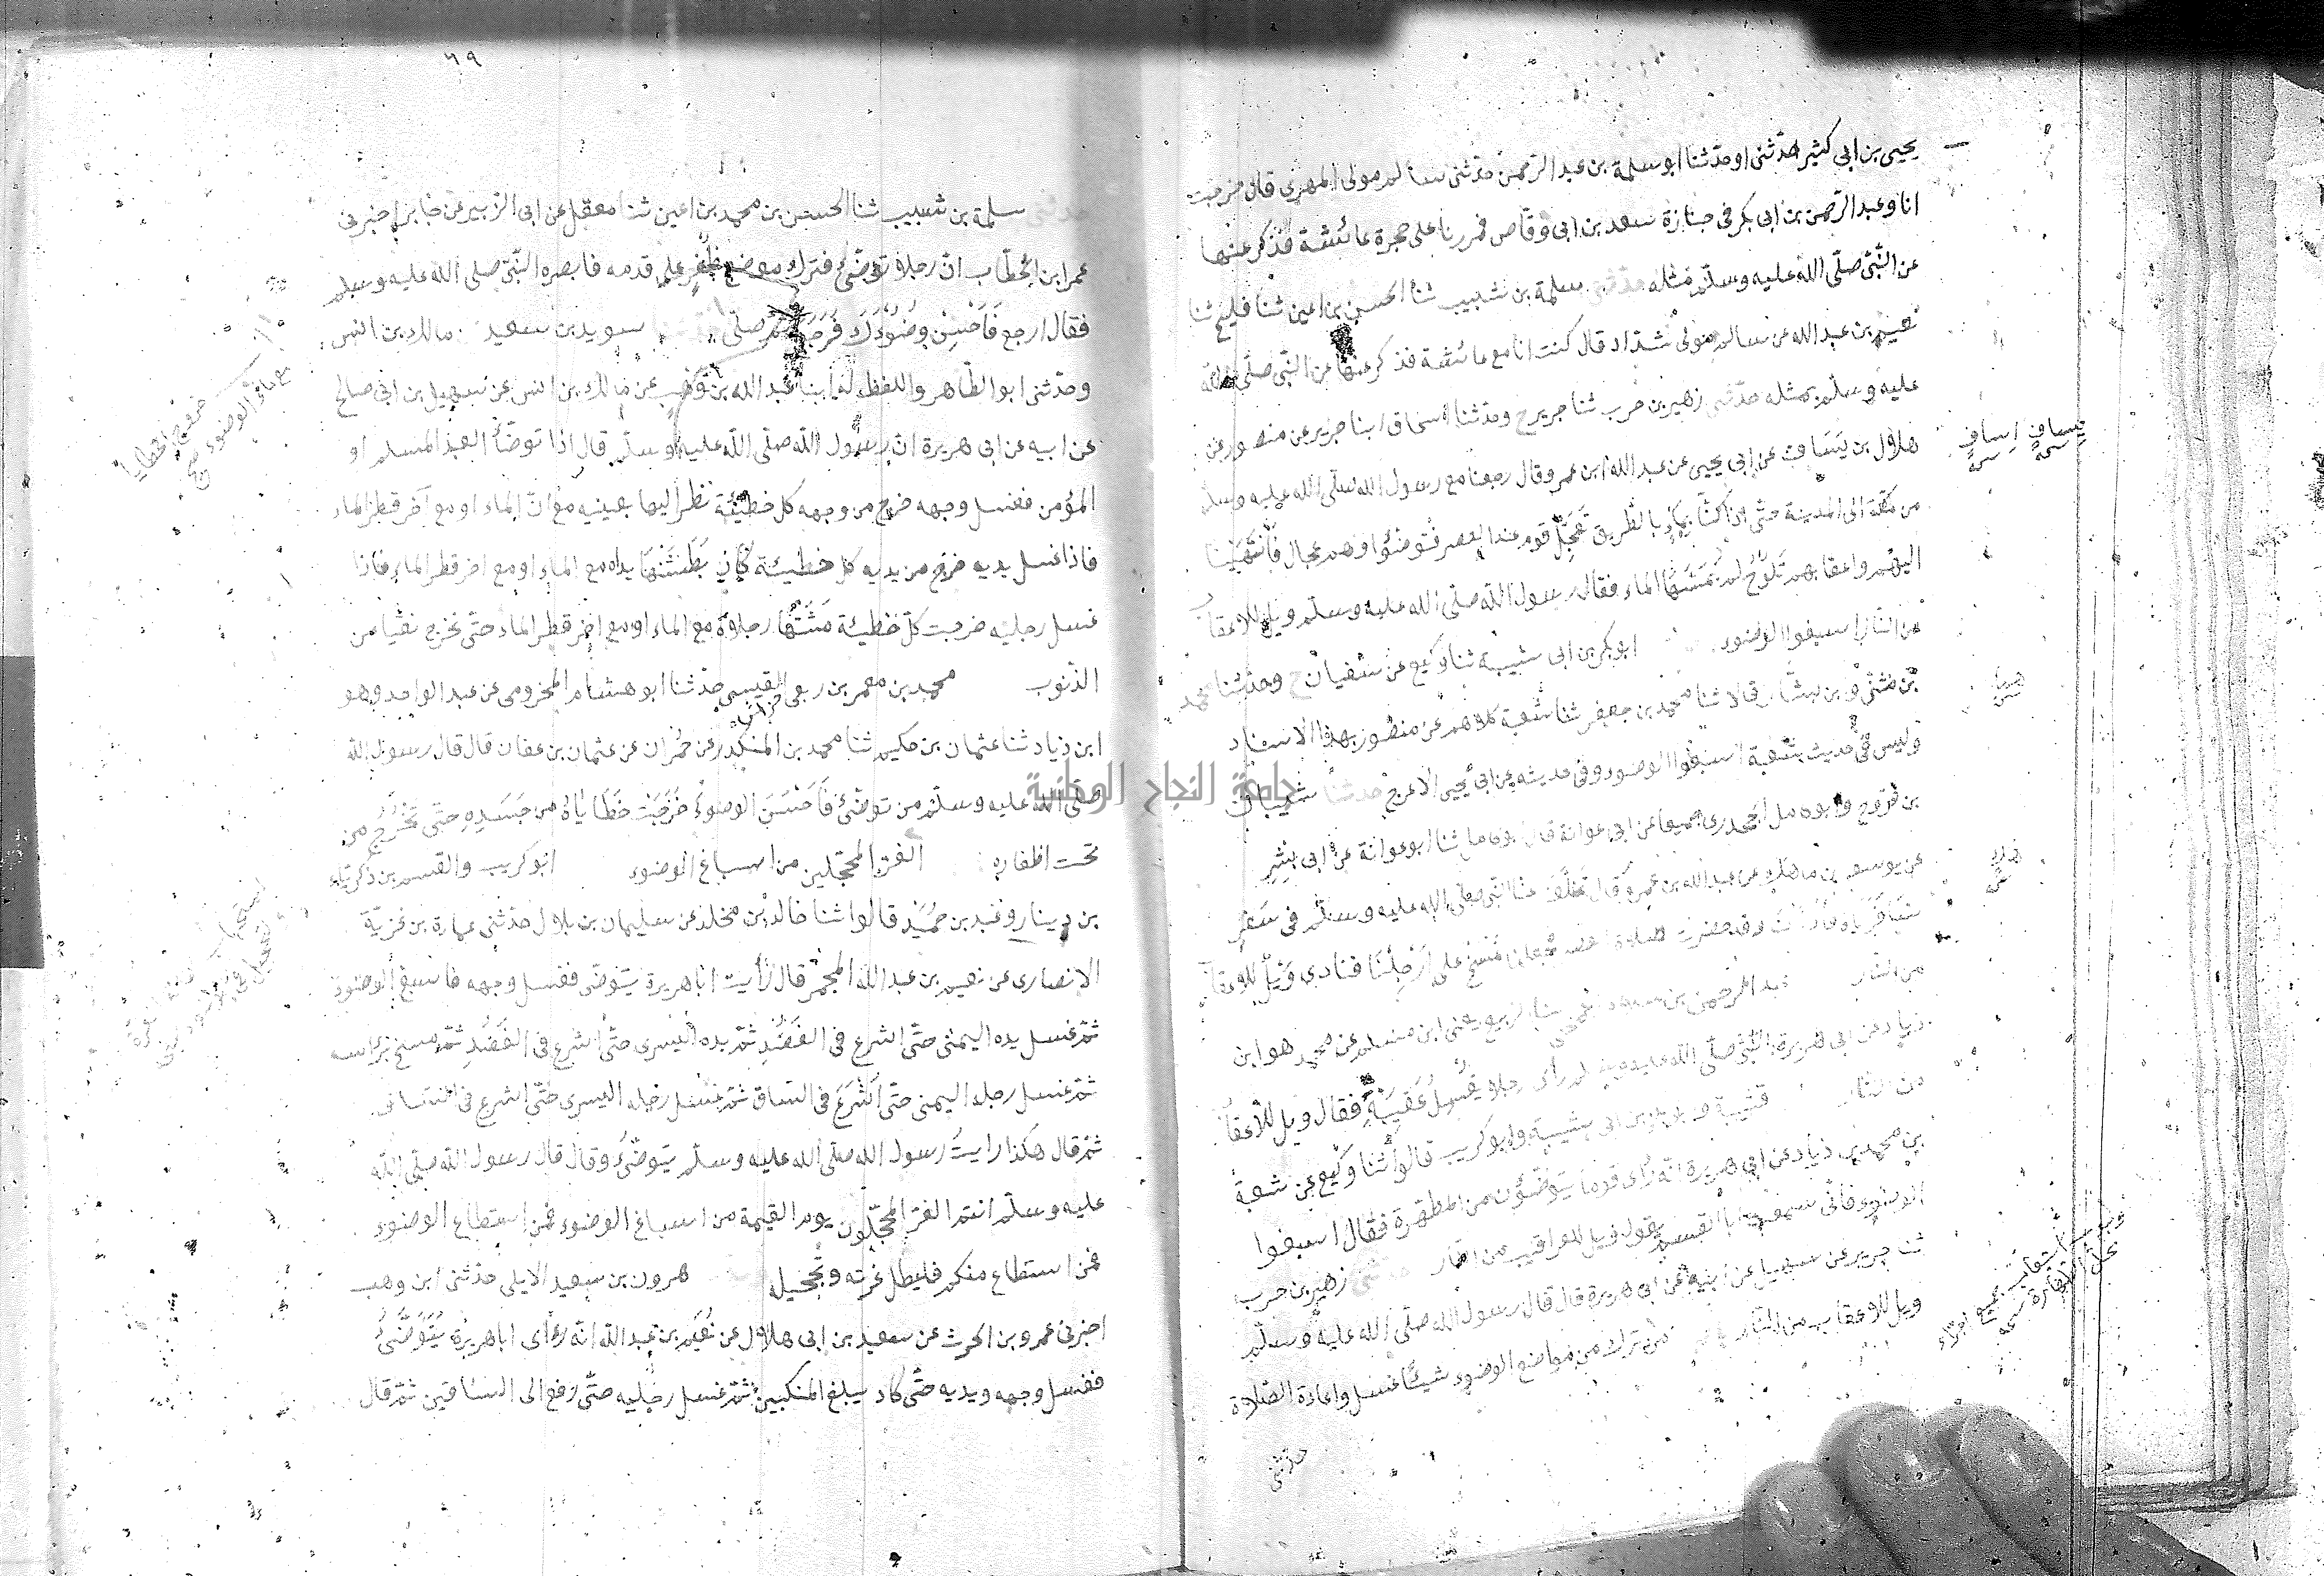 يحيى بن ابى كثير حدثنى او حدثنا ابو سلمة بن عبد الرحمن حدثنى سالم مولى المهرى قال خرجت
انا وعبد الرحمن بن ابى بكر فى جنازة سعد بن ابى وقاص فمررنا على حجرة عائشة فذكر عنها
عن النبى صلى الله عليه وسلم مثله حدثنى سلمة بن شبيب ثنا الحسن بن اعين ثنا فليح ثنا
نعيم بن عبد الله عن سالم مولى شداد قال كنت انا مع عائشة فذكر عنها عن النبى صلى الله
عليه وسلم بمثله حدثنى زهير بن حرب ثنا جرير ح وحدثنا اسحاق ابنا جرير عن منصور عن
هلال بن يساف عن ابى يحيى عن عبد الله ابن عمرو قال رجعنا مع رسول الله صلى الله عليه وسلم
يساف اساف
من مكة الى المدينة حتى اذا كنا بماء بالطريق تعجل قوم عند العصر فتوضئوا وهم عجال فانتهينا
اليهم واعقابهم تلوح لم يمسها الماء فقال رسول الله صلى الله عليه وسلم ويل للاعقاب
من النار اسبغوا الوضوء ابو بكر بن ابى شيبة ثنا وكيع عن سفيان ح وحدثنا محمد
بن مثنى وابن بشار قالا ثنا محمد بن جعفر ثنا شعبة كلاهما عن منصور بهذا الاسناد
وليس فى حديث شعبة اسبغوا الوضوء وفى حديثه عن ابى يحيى الاعرج حدثنا شيبان
بن فروخ وابو كامل الجحدرى جميعا عن ابى عوانة قال ابو كامل ثنا ابو عوانة عن ابى بشر
عن يوسف بن ماهك عن عبد الله بن عمرو قال تخلف عنا النبى صلى الله عليه وسلم فى سفر
سافرناه فادركنا وقد حضرت صلاة العصر فجعلنا نمسح على ارجلنا فنادى ويل للاعقاب
من النار عبد الرحمن بن سلام الجمحى ثنا الربيع يعنى ابن مسلم عن محمد هو ابن
زياد عن ابى هريرة ان النبى صلى الله عليه وسلم رأى رجلا لم يغسل عقبيه فقال ويل للاعقاب
من النار قتيبة وابو بكر بن ابى شيبة وابو كريب قالوا ثنا وكيع عن شعبة
بن محمد بن زياد عن ابى هريرة انه رأى قوما يتوضؤن من المطهرة فقال اسبغوا
الوضوء فانى سمعت ابا القسم يقول ويل للعراقيب من النار حدثنى زهير بن حرب
ثنا جرير عن سهيل عن ابيه عن ابى هريرة قال قال رسول الله صلى الله عليه وسلم
ويل للاعقاب من النار من ترك من مواضع الوضوء شيئا غسله واعادة الصلاة
حدثنى
٦٩
حدثنى سلمة بن شبيب ثنا الحسن بن محمد بن اعين ثنا معقل عن ابى الزبير عن جابر اخبرنى
عمر ابن الخطاب ان رجلا توضئ فترك موضع ظفر على قدمه فابصره النبى صلى الله عليه وسلم
فقال ارجع فاحسن وضوءك فرجع ثم صلى سويد بن سعيد مالك بن انس
وحدثنى ابو الطاهر واللفظ له ابنا عبد الله بن وهب عن مالك بن انس عن سهيل بن ابى صالح
عن ابيه عن ابى هريرة ان رسول الله صلى الله عليه وسلم قال اذا توضأ العبد المسلم او
المؤمن فغسل وجهه خرج من وجهه كل خطيئة نظر اليها بعينيه مع الماء او مع آخر قطر الماء
فاذا غسل يديه خرج من يديه كل خطيئة كان بطشتها يداه مع الماء او مع اخر قطر الماء فاذا
غسل رجليه خرجت كل خطيئة مشتها رجلاه مع الماء او مع اخر قطر الماء حتى يخرج نقيا من
الذنوب محمد بن معمر بن ربعى القيسى حدثنا ابو هشام المخزومى عن عبد الواحد وهو
ابن زياد ثنا عثمان بن حكيم ثنا محمد بن المنكدر عن حمران عن عثمان بن عفان قال قال رسول الله
صلى الله عليه وسلم من توضئ فاحسن الوضوء خرجت خطاياه من جسده حتى تخرج من
تحت اظفاره الغر المحجلين من اسباغ الوضوء ابو كريب والقسم بن زكرياء
بن دينار وعبد بن حميد قالوا ثنا خالد بن مخلد عن سليمان بن بلال حدثنى عمارة بن غزية
الانصارى عن نعيم بن عبد الله المجمر قال رأيت ابا هريرة يتوضى فغسل وجهه فاسبغ الوضوء
ثم غسل يده اليمنى حتى اشرع فى العضد ثم يده اليسرى حتى اشرع فى العضد ثم مسح برأسه
ثم غسل رجله اليمنى حتى اشرع فى الساق ثم غسل رجله اليسرى حتى اشرع فى الساق
ثم قال هكذا رايت رسول الله صلى الله عليه وسلم يتوضئ وقال قال رسول الله صلى الله
عليه وسلم انتم الغر المحجلون يوم القيمة من اسباغ الوضوء فمن استطاع الوضوء
فمن استطاع منكم فليطل غرته وتحجيله هرون بن سعيد الايلى حدثنى ابن وهب
اخبرنى عمرو بن الحرث عن سعيد بن ابى هلال عن نعيم بن عبد الله انه رأى ابا هريرة يتوضئ
فغسل وجهه ويديه حتى كاد يبلغ المنكبين ثم غسل رجليه حتى رفع الى الساقين ثم قال
خروج الخطايا
مع ماء الوضوء
جامعة النجاح الوطنية